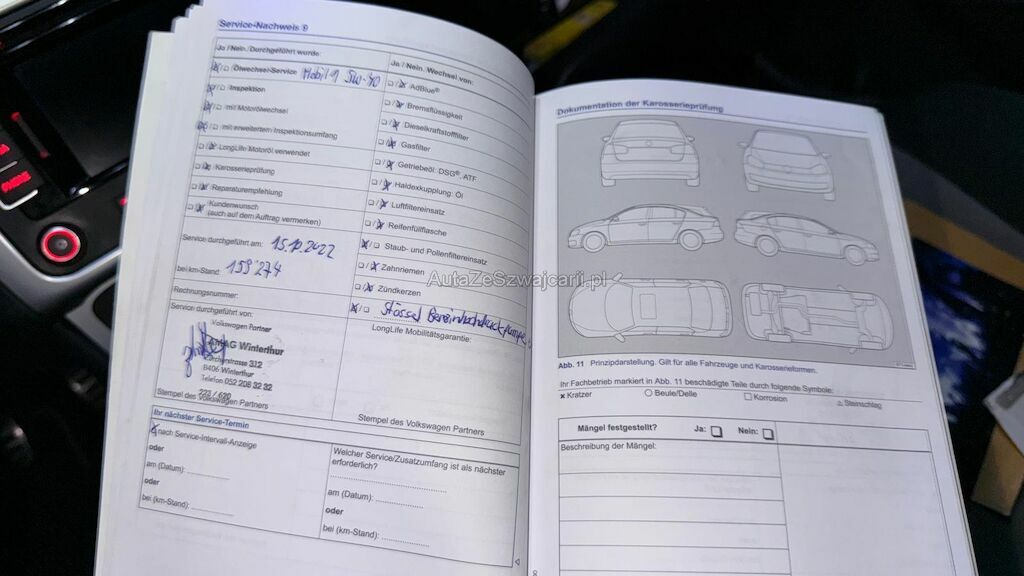 Service-Nachweis
Ja / Nein, Durchgeführt wurde:
Ölwechsel-Service Mobil 1 5W-40
Inspektion
mit Motorölwechsel
mit erweitertem Inspektionsumfang
LongLife Motoröl verwendet
Karosserieprüfung
Reparaturempfehlung
Kundenwunsch
(auch auf dem Auftrag vermerken)
Service durchgeführt am: 15.12.2022
bei km-Stand: 159'274
Rechnungsnummer:
Service durchgeführt von:
Volkswagen Partner
AMAG Winterthur
8406 Winterthur
Telefon 052 208 32 32
Stempel des Volkswagen Partners
Ja / Nein, Wechsel von:
AdBlue®
Bremsflüssigkeit
Dieselkraftstofffilter
Gasfilter
Getriebeöl: DSG®, ATF
Haldexkupplung: Öl
Luftfiltereinsatz
Reifenfüllflasche
Staub- und Pollenfiltereinsatz
Zahnriemen
Zündkerzen
Stössel
LongLife Mobilitätsgarantie:
Stempel des Volkswagen Partners
Ihr nächster Service-Termin
nach Service-Intervall-Anzeige
oder
am (Datum):
oder
bei (km-Stand):
Welcher Service/Zusatzumfang ist als nächster
erforderlich?
am (Datum):
oder
bei (km-Stand):
AutaZeSzwajcarii.pl
Dokumentation der Karosserieprüfung
Abb. 11 Prinzipdarstellung. Gilt für alle Fahrzeuge und Karosserieformen.
Ihr Fachbetrieb markiert in Abb. 11 beschädigte Teile durch folgende Symbole:
Kratzer Beule/Delle Korrosion Steinschlag
Mängel festgestellt? Ja: Nein:
Beschreibung der Mängel: